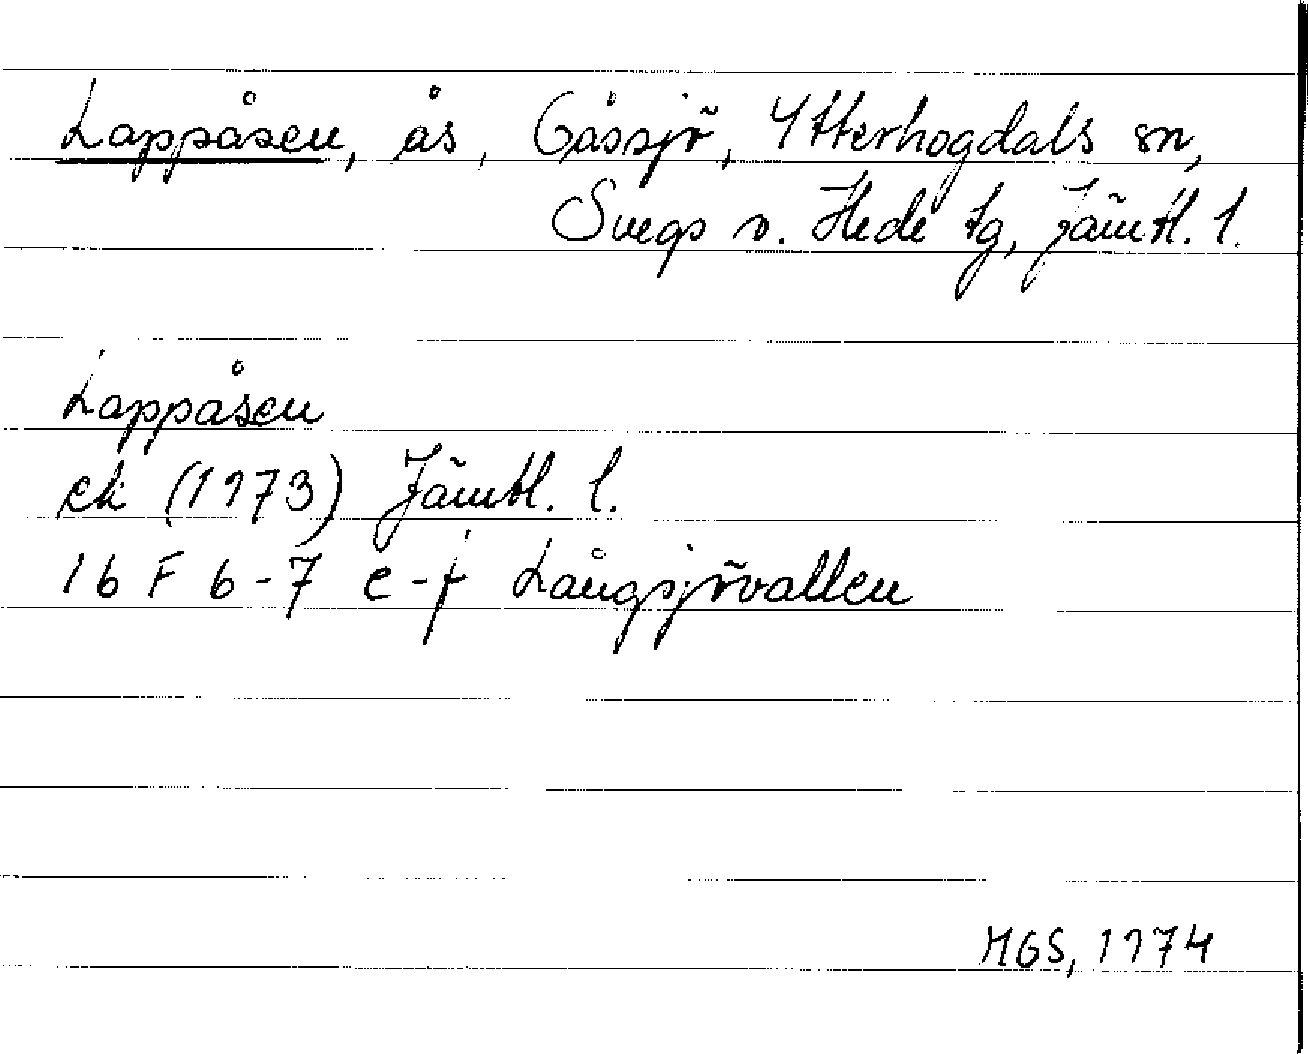 Lappåsen, ås, Gåssjö, Ytterhogdals sn,
Svegs o. Hede tg, Jämtl. l.
Lappåsen
ek (1973) Jämtl. l.
16 F 6-7 e-f Långsjövallen
MGS, 1974